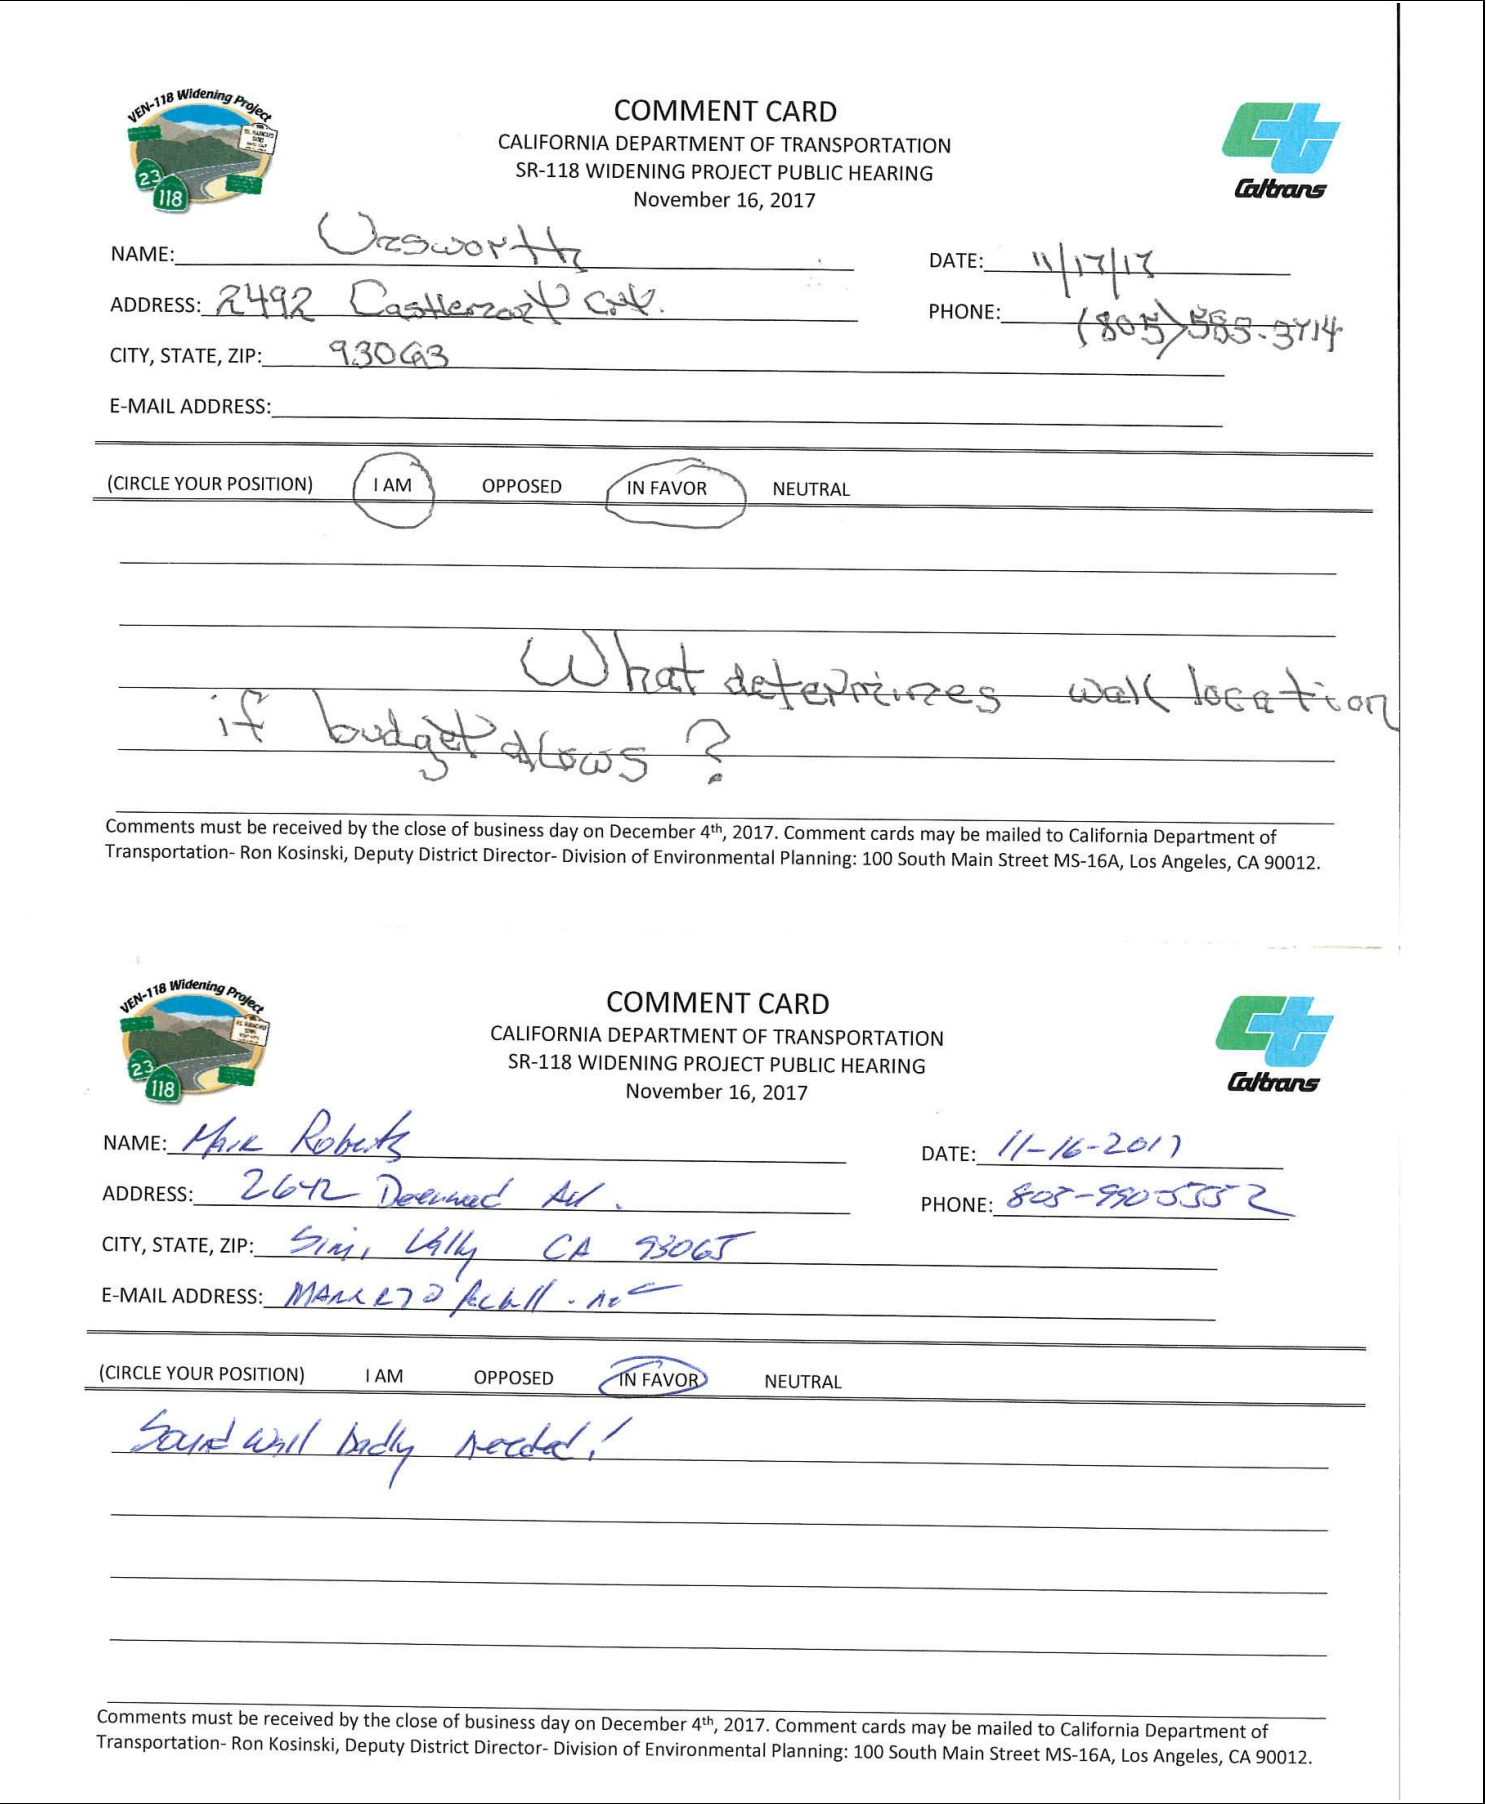 VEN-118 Widening Project
23
118
COMMENT CARD
CALIFORNIA DEPARTMENT OF TRANSPORTATION
SR-118 WIDENING PROJECT PUBLIC HEARING
November 16, 2017
Caltrans
NAME:
DATE: 11/17/17
ADDRESS: 2492
PHONE: (805)
CITY, STATE, ZIP: 93063
E-MAIL ADDRESS:
(CIRCLE YOUR POSITION) I AM OPPOSED IN FAVOR NEUTRAL
What determines wall location
if budget allows ?
Comments must be received by the close of business day on December 4th, 2017. Comment cards may be mailed to California Department of
Transportation- Ron Kosinski, Deputy District Director- Division of Environmental Planning: 100 South Main Street MS-16A, Los Angeles, CA 90012.
VEN-118 Widening Project
23
118
COMMENT CARD
CALIFORNIA DEPARTMENT OF TRANSPORTATION
SR-118 WIDENING PROJECT PUBLIC HEARING
November 16, 2017
Caltrans
NAME: Mark Roberts
DATE: 11-16-2017
ADDRESS: 2642
PHONE: 805-990-5552
CITY, STATE, ZIP: Simi Vally CA 93065
E-MAIL ADDRESS:
(CIRCLE YOUR POSITION) I AM OPPOSED IN FAVOR NEUTRAL
Sound Wall badly needed!
Comments must be received by the close of business day on December 4th, 2017. Comment cards may be mailed to California Department of
Transportation- Ron Kosinski, Deputy District Director- Division of Environmental Planning: 100 South Main Street MS-16A, Los Angeles, CA 90012.